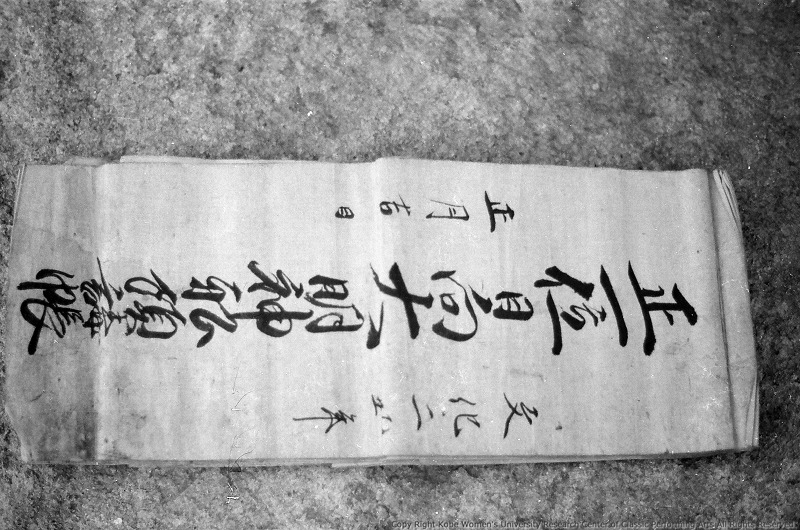 文化二丑年
正一位日向大明神帳
正月吉日
Copy Right Kobe Women's University Research Center of Classic Performing Arts All Rights Reserved